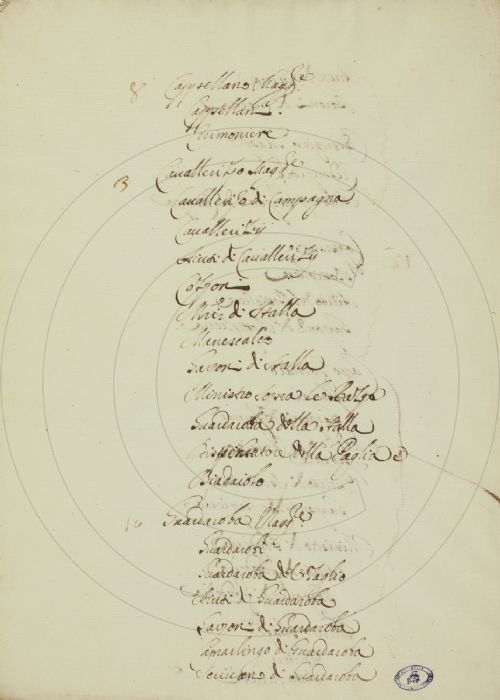 8 Cappellano Magg.re
Cappellani
Cerimoniere
3 Cavallerizzo Magg.re
Cavallerizo di Campagna
Cavallerizzi
Aiuti di Cavallerizzi
Cozzoni
di Stalla
Menescalco
Garzoni di Stalla
Ministro sopra le
Guardaroba della Stalla
Dispensatore della Paglia e
Biadaiolo
Guardaroba Magg.re
Guardarobi
Guardaroba del Taglio
Aiuti di Guardaroba
Garzoni di Guardaroba
di Guardaroba
Scrivano di Guardaroba